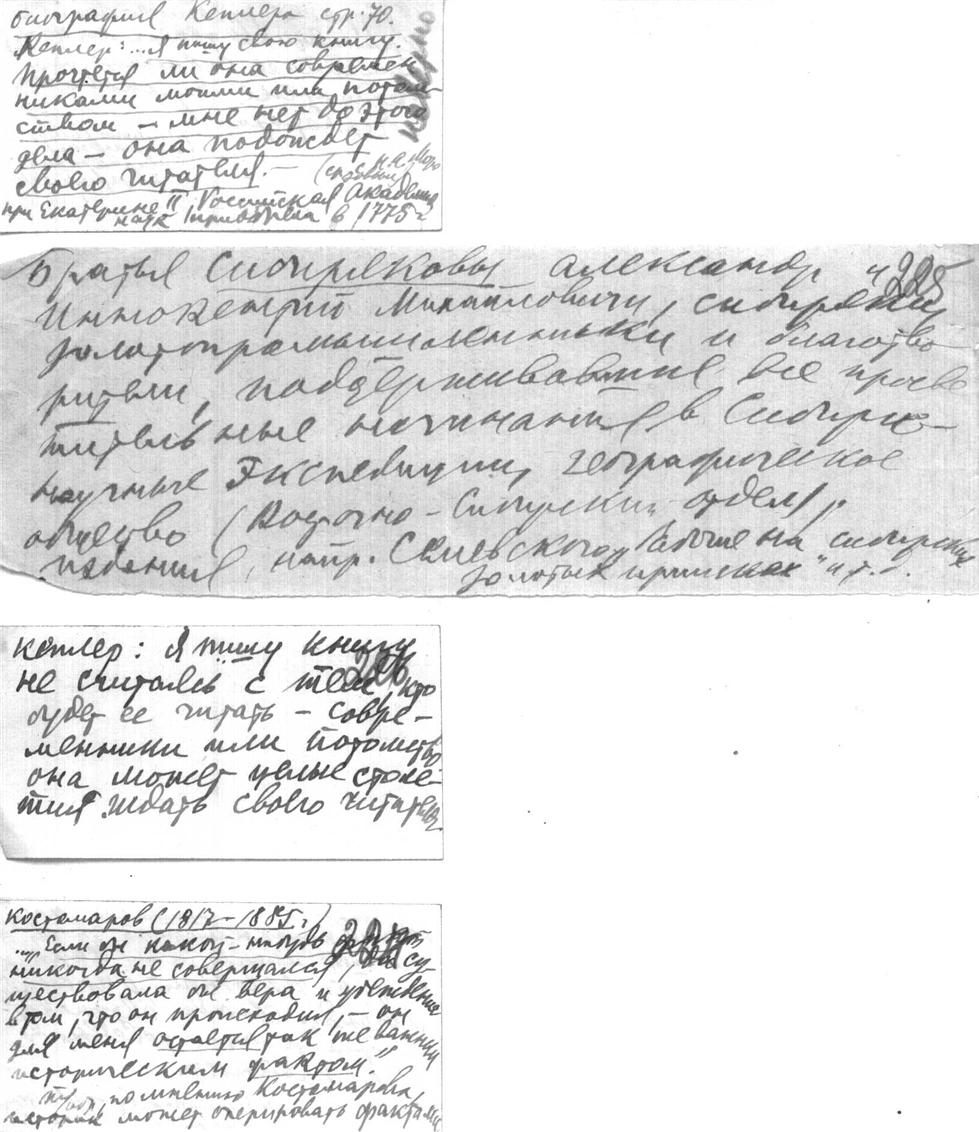 биография Кеплера стр. 70.
Кеплер: ...я пишу свою книгу.
Прочтется ли она современ
никами моими или потом
ством – мне нет до этого
дела – она подождет
своего читателя. –
при Екатерине II Российская Академия
наук в 1775 г
Братья Сибиряковы Александр и
225
Иннокентий Михайловичи, сибирские
золотопромышленники и благотво
рители, поддерживавшие все просве
тительные начинания в Сибири –
научные экспедиции, географическое
общество (Восточно-Сибирский отдел),
издания, напр. Семевского „Рабочие на сибирских
золотых приисках" и т.
Кеплер: Я пишу книгу
226
не считаясь с тем, кто
будет ее читать – совре-
менники или потомство
она может целые столе-
тия ждать своего читателя.
Костомаров (1817–1885.)
„Если бы какой-нибудь факт
никогда не совершался, но су-
ществовала бы вера и убеждение
в том, что он происходил, – он
для меня остается так же важным
историческим фактом."
по мнению Костомарова,
историк может оперировать фактами